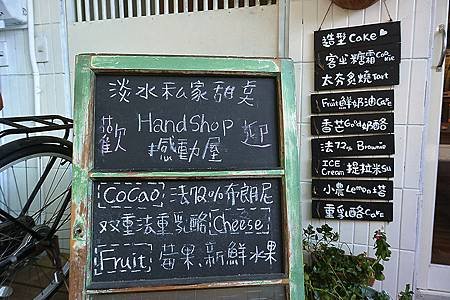 淡水私家甜桌
歡 HandShop 迎
感動屋
Cocao 法郎哈布朗尼
双重法重乳酪 Cheese
Fruit 莓果、新鮮水果
造型Cake
客坐糖霜Cookie
太夯炙燒Tart
Fruit鮮奶油Cake
香芒Good奶酪
法72% Brownie
ICE Cream 提拉米su
小農Lemon塔
重乳酪Cake